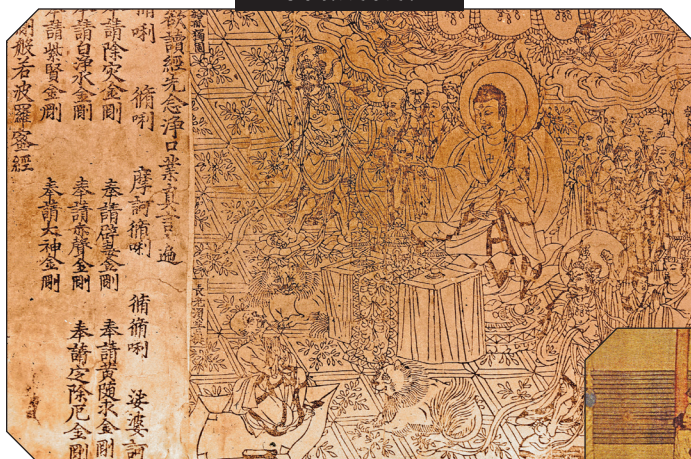 給孤獨園
欲讀經先念淨口業真言 遍
脩唎 脩唎 摩訶脩唎 脩脩唎 娑婆訶
奉請除灾金剛 奉請辟毒金剛 奉請黃隨求金剛
奉請白淨水金剛 奉請赤聲金剛 奉請定除厄金剛
請紫賢金剛 奉請大神金剛
剛般若波羅蜜經